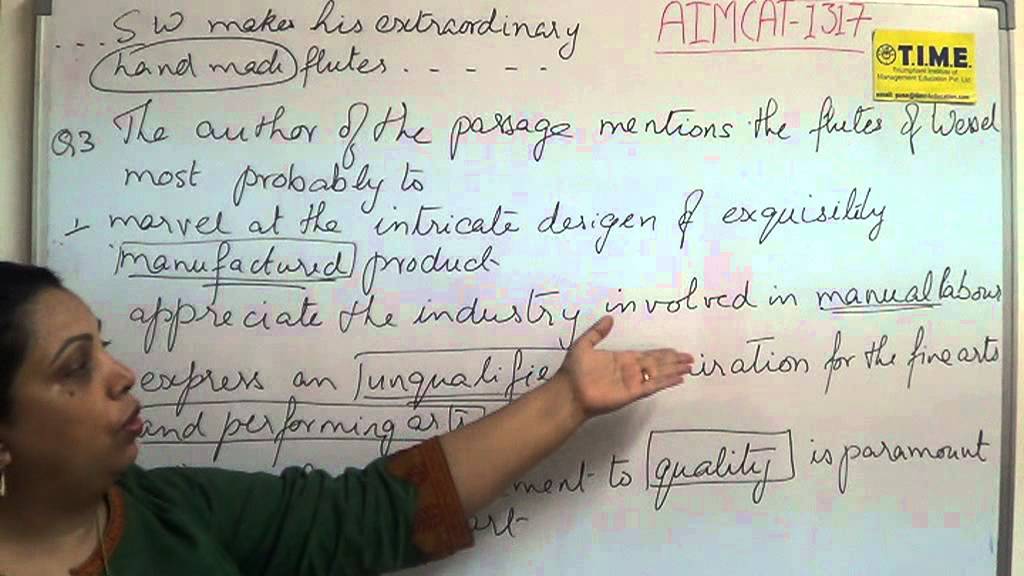 ....SW makes his extraordinary
hand made flutes.....
AIMCAT-1317
T.I.M.E.
Triumphant Institute of
Management Education Pvt. Ltd.
Q3 The author of the passage mentions the flutes of Wessel
most probably to
1- marvel at the intricate desigen of exquisility
manufactured product
appreciate the industry involved in manual labour
express an unqualifie iration for the fine arts
and performing arts
ment to quality is paramount
art